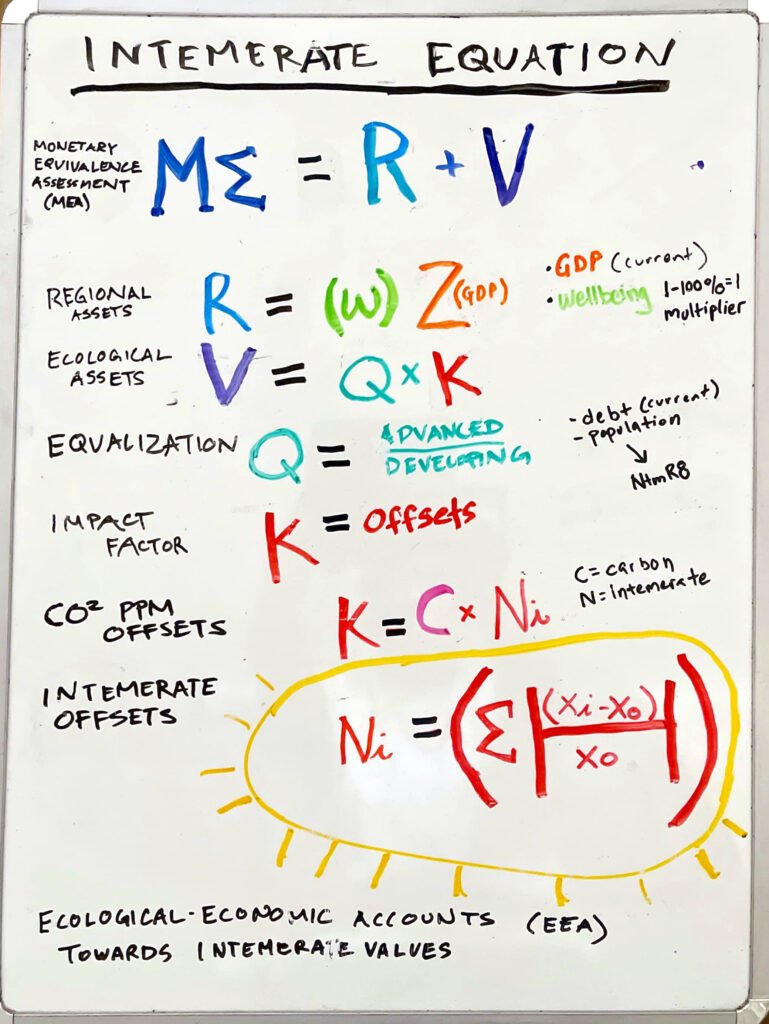 INTEMERATE EQUATION
MONETARY
EQUIVALENCE
ASSESSMENT
(MEA)
MΣ = R + V
REGIONAL
ASSETS
R = (W) Z (GDP)
• GDP (current)
• Wellbeing 1-100%=1
multiplier
ECOLOGICAL
ASSETS
V = Q × K
EQUALIZATION
Q = ADVANCED
DEVELOPING
- debt (current)
- population
↘
IMPACT
FACTOR
K = Offsets
CO² PPM
OFFSETS
K = C × Ni
C = carbon
N = intemerate
INTEMERATE
OFFSETS
Ni = (Σ |(Xi - X0) / X0|)
ECOLOGICAL-ECONOMIC ACCOUNTS (EEA)
TOWARDS INTEMERATE VALUES